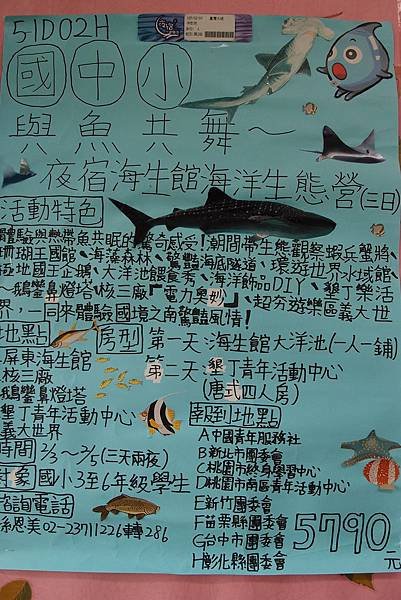 51D02H
國中小
與魚共舞~
夜宿海生館海洋生態營(三日)
活動特色
體驗與熱帶魚共眠的驚奇感受!潮間帶生態觀察蝦兵蟹將、
珊瑚王國館、海藻森林、驚豔海底隧道、環遊世界水域館、
極地國王企鵝、大洋池餵食秀、海洋飾品DIY、墾丁樂活
~鵝鑾鼻燈塔、核三廠『電力奧妙』、超夯遊樂區義大世
界,一同來體驗國境之南驚豔風情!
地點
屏東海生館
核三廠
鵝鑾鼻燈塔
墾丁青年活動中心
義大世界
房型
第一天 海生館大洋池(一人一鋪)
第二天 墾丁青年活動中心
(唐式四人房)
時間 2/3~2/5(三天兩夜)
對象 國小3至6年級學生
諮詢電話
孫恩美02-23711226轉286
報到地點
A中國青年服務社
B新北市團委會
C桃園市終身學習中心
D桃園市南區青年活動中心
E新竹團委會
F苗栗縣團委會
G台中市團委會
H彰化縣團委會
5790元